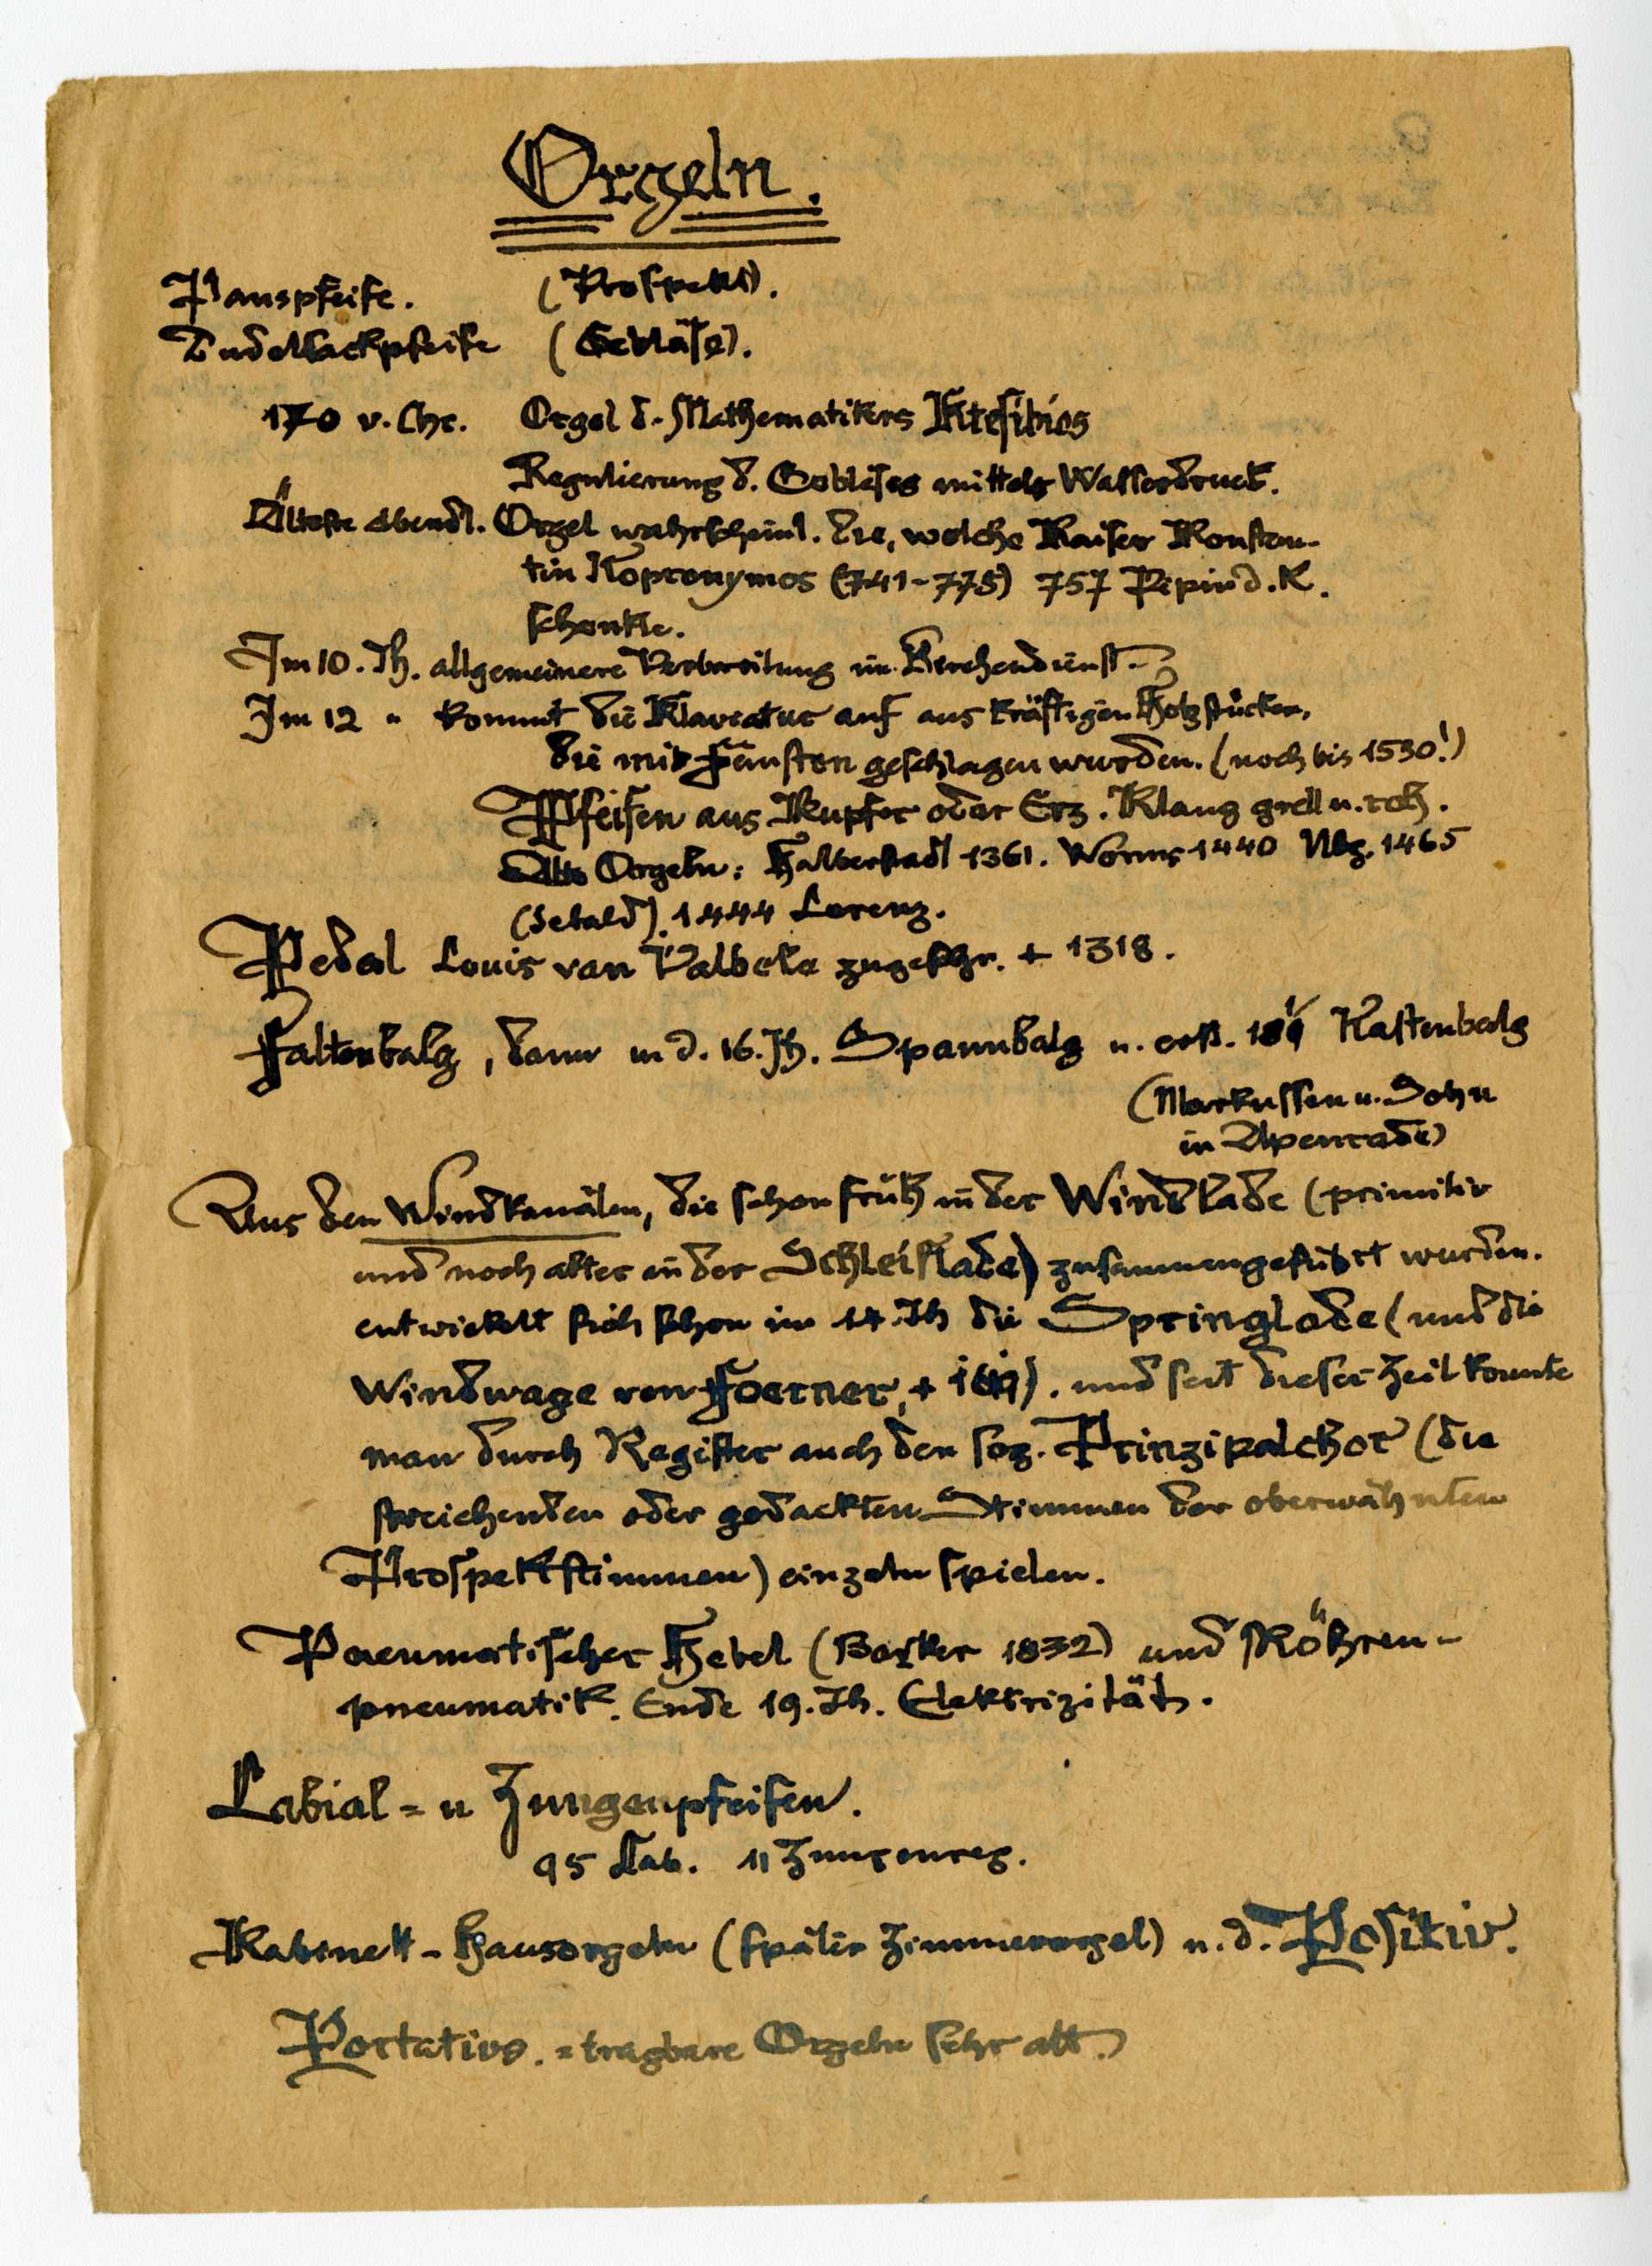 Orgeln.
Panspfeife. (Prospekt).
Dudelsackpfeife (Gebläse).
170 v. Chr. Orgel d. Mathematikers Ktesibios
Regulierung d. Gebläses mittels Wasserdruck.
Älteste abendl. Orgel wahrscheinl. die, welche Kaiser Konstan-
tin Kopronymos (741-775) 757 Pipin d. K.
schenkte.
Im 10. Jh. allgemeinere Verbreitung im Kirchendienst.
Im 12 " kommt die Klaviatur auf aus kräftigen Holzstücken,
die mit Fäusten geschlagen wurden. (noch bis 1530!)
Pfeifen aus Kupfer oder Erz. Klang grell u. roh.
Alte Orgeln: Halberstadt 1361. Worms 1440 Nbg. 1465
(Sebald). 1444 Lorenz.
Pedal Louis van Valbeke zugeschr. + 1318.
Faltenbalg, dann in d. 16. Jh. Spannbalg u. erst. Kastenbalg
(Markussen u. Sohn
in Apenrade)
Aus den Windkanälen, die schon früh in der Windlade (primitiv
und noch älter in der Schleiflade) zusammengeführt wurden.
entwickelt sich schon im 14. Jh die Springlade (und die
Windwage von Foerner, + ). und seit dieser Zeit konnte
man durch Register auch den sog. Prinzipalchor (die
streichenden oder gedackten Stimmen der oberwähnten
Prospektstimmen) einzeln spielen.
Pneumatischer Hebel (Barker 1832) und Röhren-
pneumatik. Ende 19. Jh. Elektrizität.
Labial = u Zungenpfeifen.
95 Lab. 11 Zungenreg.
Kabinett - Hausorgeln (später Zimmerorgel) u. d. Positiv.
Portative. = tragbare Orgeln sehr alt.)